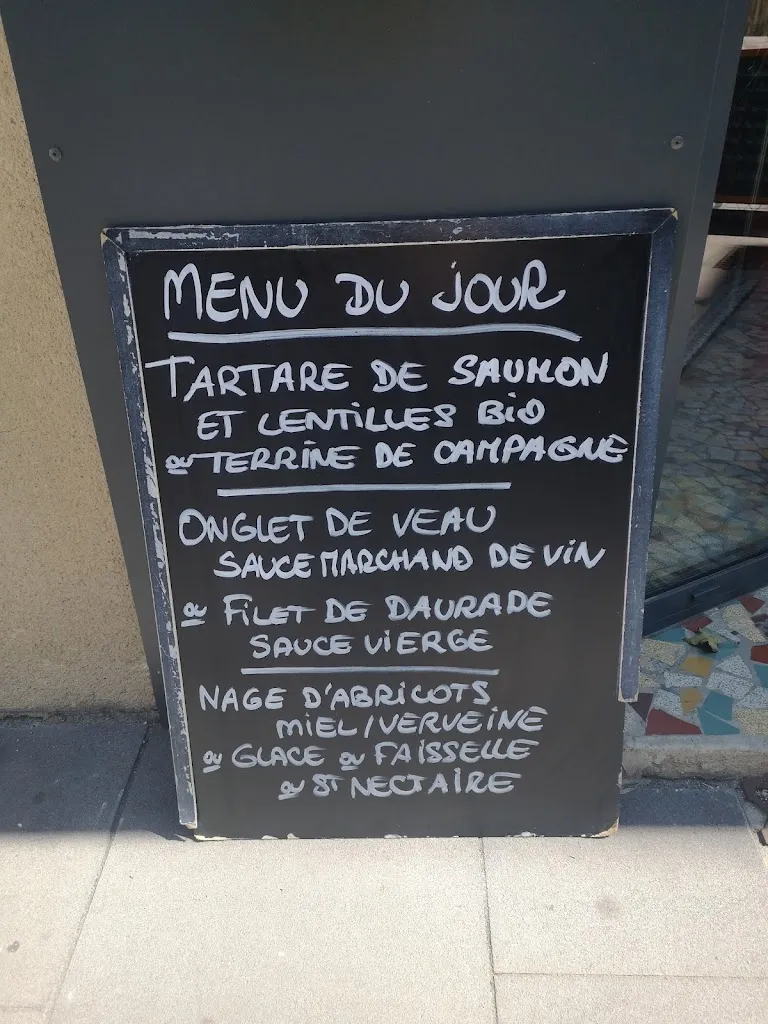 MENU DU JOUR
TARTARE DE SAUMON
ET LENTILLES BIO
ou TERRINE DE CAMPAGNE
ONGLET DE VEAU
SAUCE MARCHAND DE VIN
ou FILET DE DAURADE
SAUCE VIERGE
NAGE D'ABRICOTS
MIEL/VERVEINE
ou GLACE ou FAISSELLE
ou ST NECTAIRE